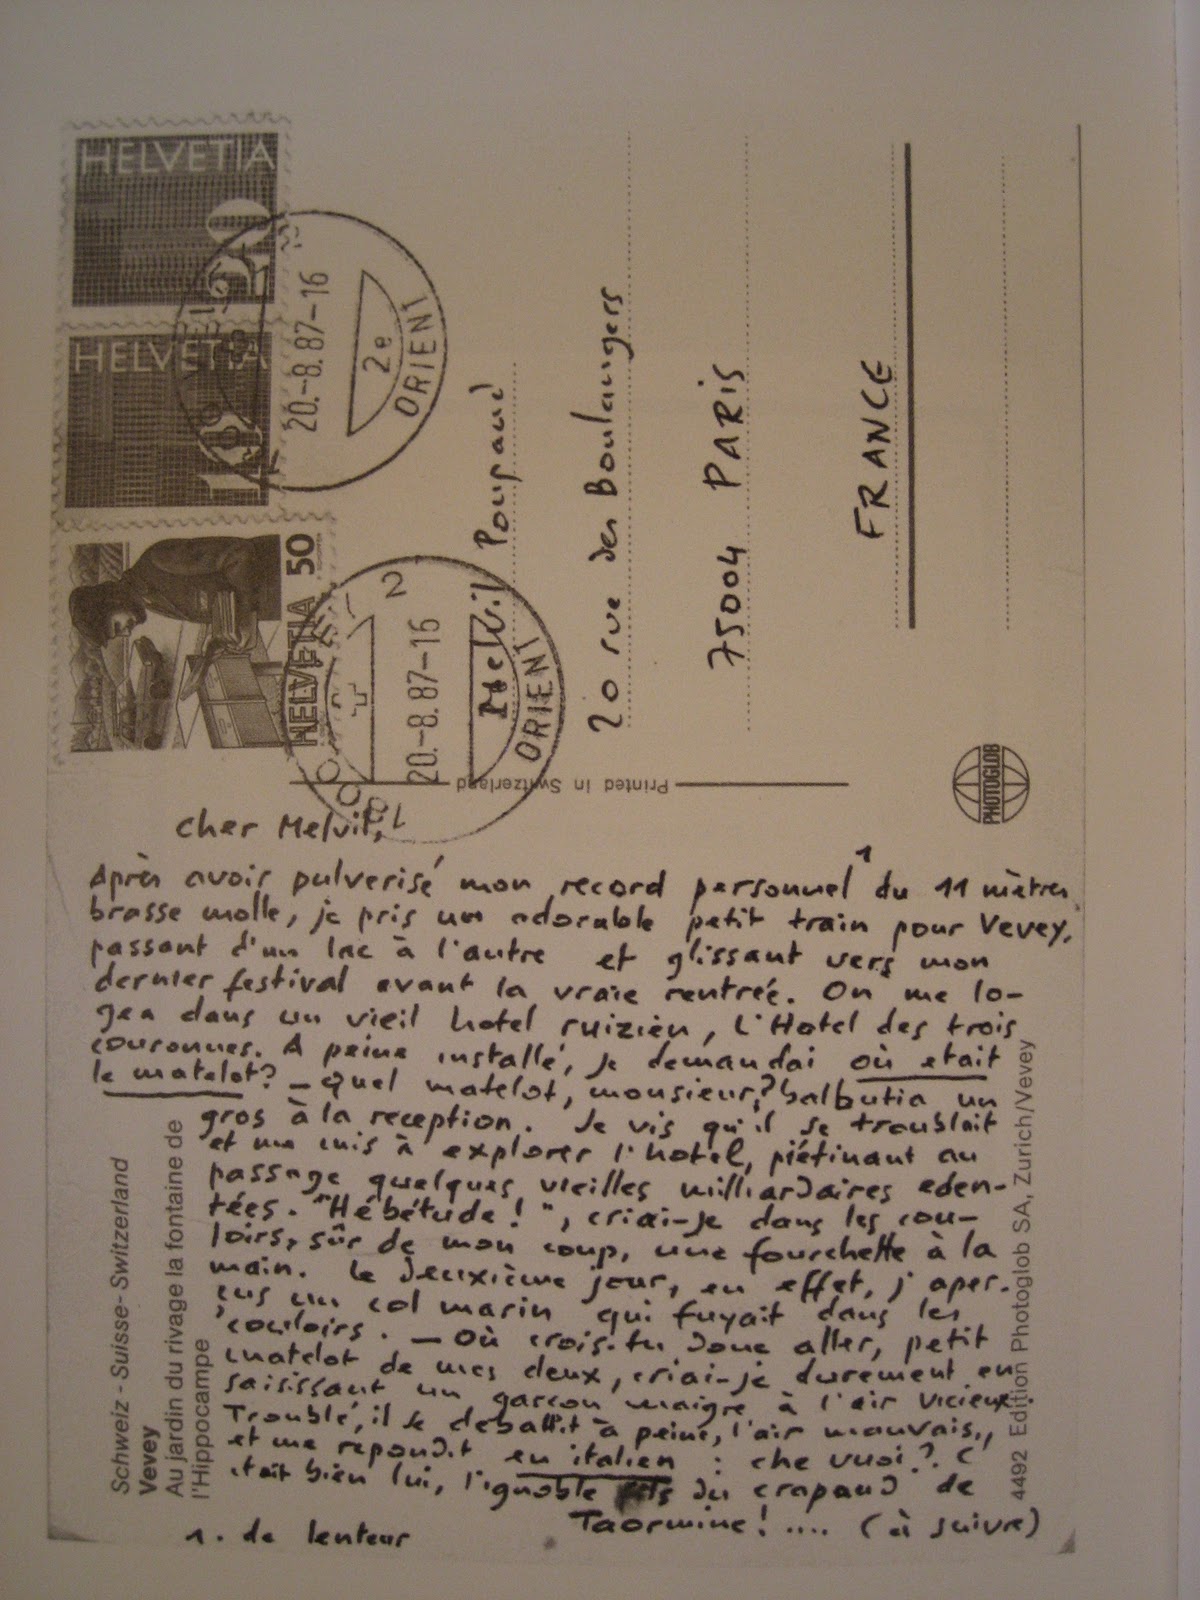 HELVETIA
20
HELVETIA
10
HELVETIA 50
20.-8.87-16
2e
ORIENT
2
20.-8.87-16
ORIENT
1800
Melvil Poupaud
20 rue des Boulangers
75004 PARIS
FRANCE
Printed in Switzerland
PHOTOGLOB
Cher Melvil,
Après avoir pulverisé mon record personnel ¹ du 11 mètres
brasse molle, je pris un adorable petit train pour Vevey,
passant d'un lac à l'autre et glissant vers mon
dernier festival avant la vraie rentrée. On me lo-
gea dans un vieil hotel ruizien, l'Hotel des trois
couronnes. A peine installé, je demandai où etait
le matelot? – Quel matelot, monsieur? balbutia un
gros à la reception. Je vis qu'il se troublait
et me mis à explorer l'hotel, piétinant au
passage quelques vieilles milliardaires eden-
tées. "Hébétude!", criai-je dans les cou-
loirs, sûr de mon coup, une fourchette à la
main. Le deuxième jour, en effet, j'aper-
çus un col marin qui fuyait dans les
couloirs. – Où crois-tu donc aller, petit
matelot de mes deux, criai-je durement en
saisissant un garcon maigre à l'air vicieux.
Troublé, il se debattit à peine, l'air mauvais,
et me repondit en italien : che vuoi?. C'
etait bien lui, l'ignoble fils du crapaud de
Taormine! .... (à suivre)
1. de lenteur
Schweiz - Suisse - Switzerland
Vevey
Au jardin du rivage la fontaine de
l'Hippocampe
4492 Edition Photoglob SA, Zurich/Vevey